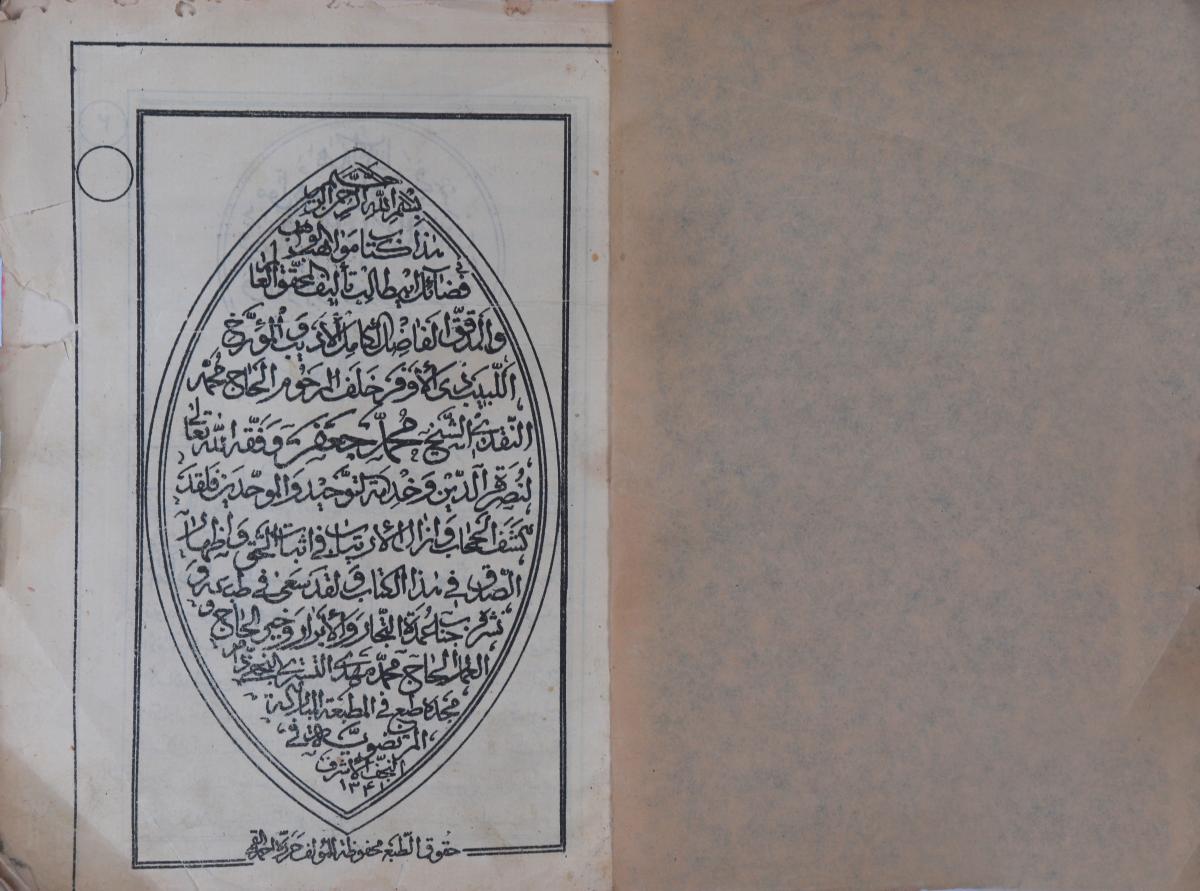 بسم الله الرحمن الرحيم
هذا كتاب مواهب الواهب
في فضائل ابي طالب تأليف المحقق العالم
والمدقق الفاضل الكامل الأديب والمؤرخ
اللبيب ذي الأوفر خلف المرحوم الحاج محمد
النقدي الشيخ محمد جعفر وفقه الله تعالى
لنصرة الدين وخدمة التوحيد والموحدين فلقد
كشف الحجاب وأزال الأرتياب في اثبات الحق واظهار
الصدق في هذا الكتاب ولقد سعى في طبعه و
نشره جناب عمدة التجار والأبرار وخير الحاج و
العمار الحاج محمد مهدي التستري النجفي
مجده طبع في المطبعة المباركة
المرتضوية في
النجف الأشرف
١٣٤١
حقوق الطبع محفوظة للمؤلف حرره
٢